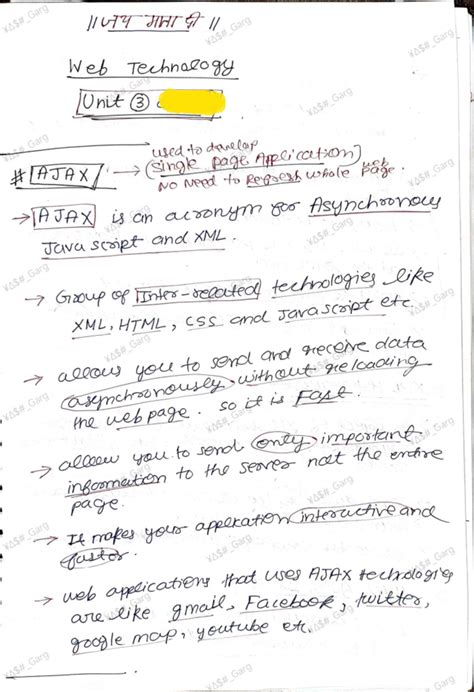 ॥ जय माता दी ॥
Web Technology
Unit ③
used to develop
# AJAX → (Single Page Application)
No Need to Refresh whole web page.
→ AJAX is an acronym for Asynchronous
Java script and XML.
→ Group of Inter-related technologies like
XML, HTML, CSS and JavaScript etc.
→ allows you to send and receive data
asynchronously without reloading
the web page. so it is Fast.
→ allow you to send only important
information to the server not the entire
page.
→ It makes your application interactive and
faster.
→ web applications that uses AJAX technologies
are like gmail, Facebook, twitter,
google map, youtube etc.